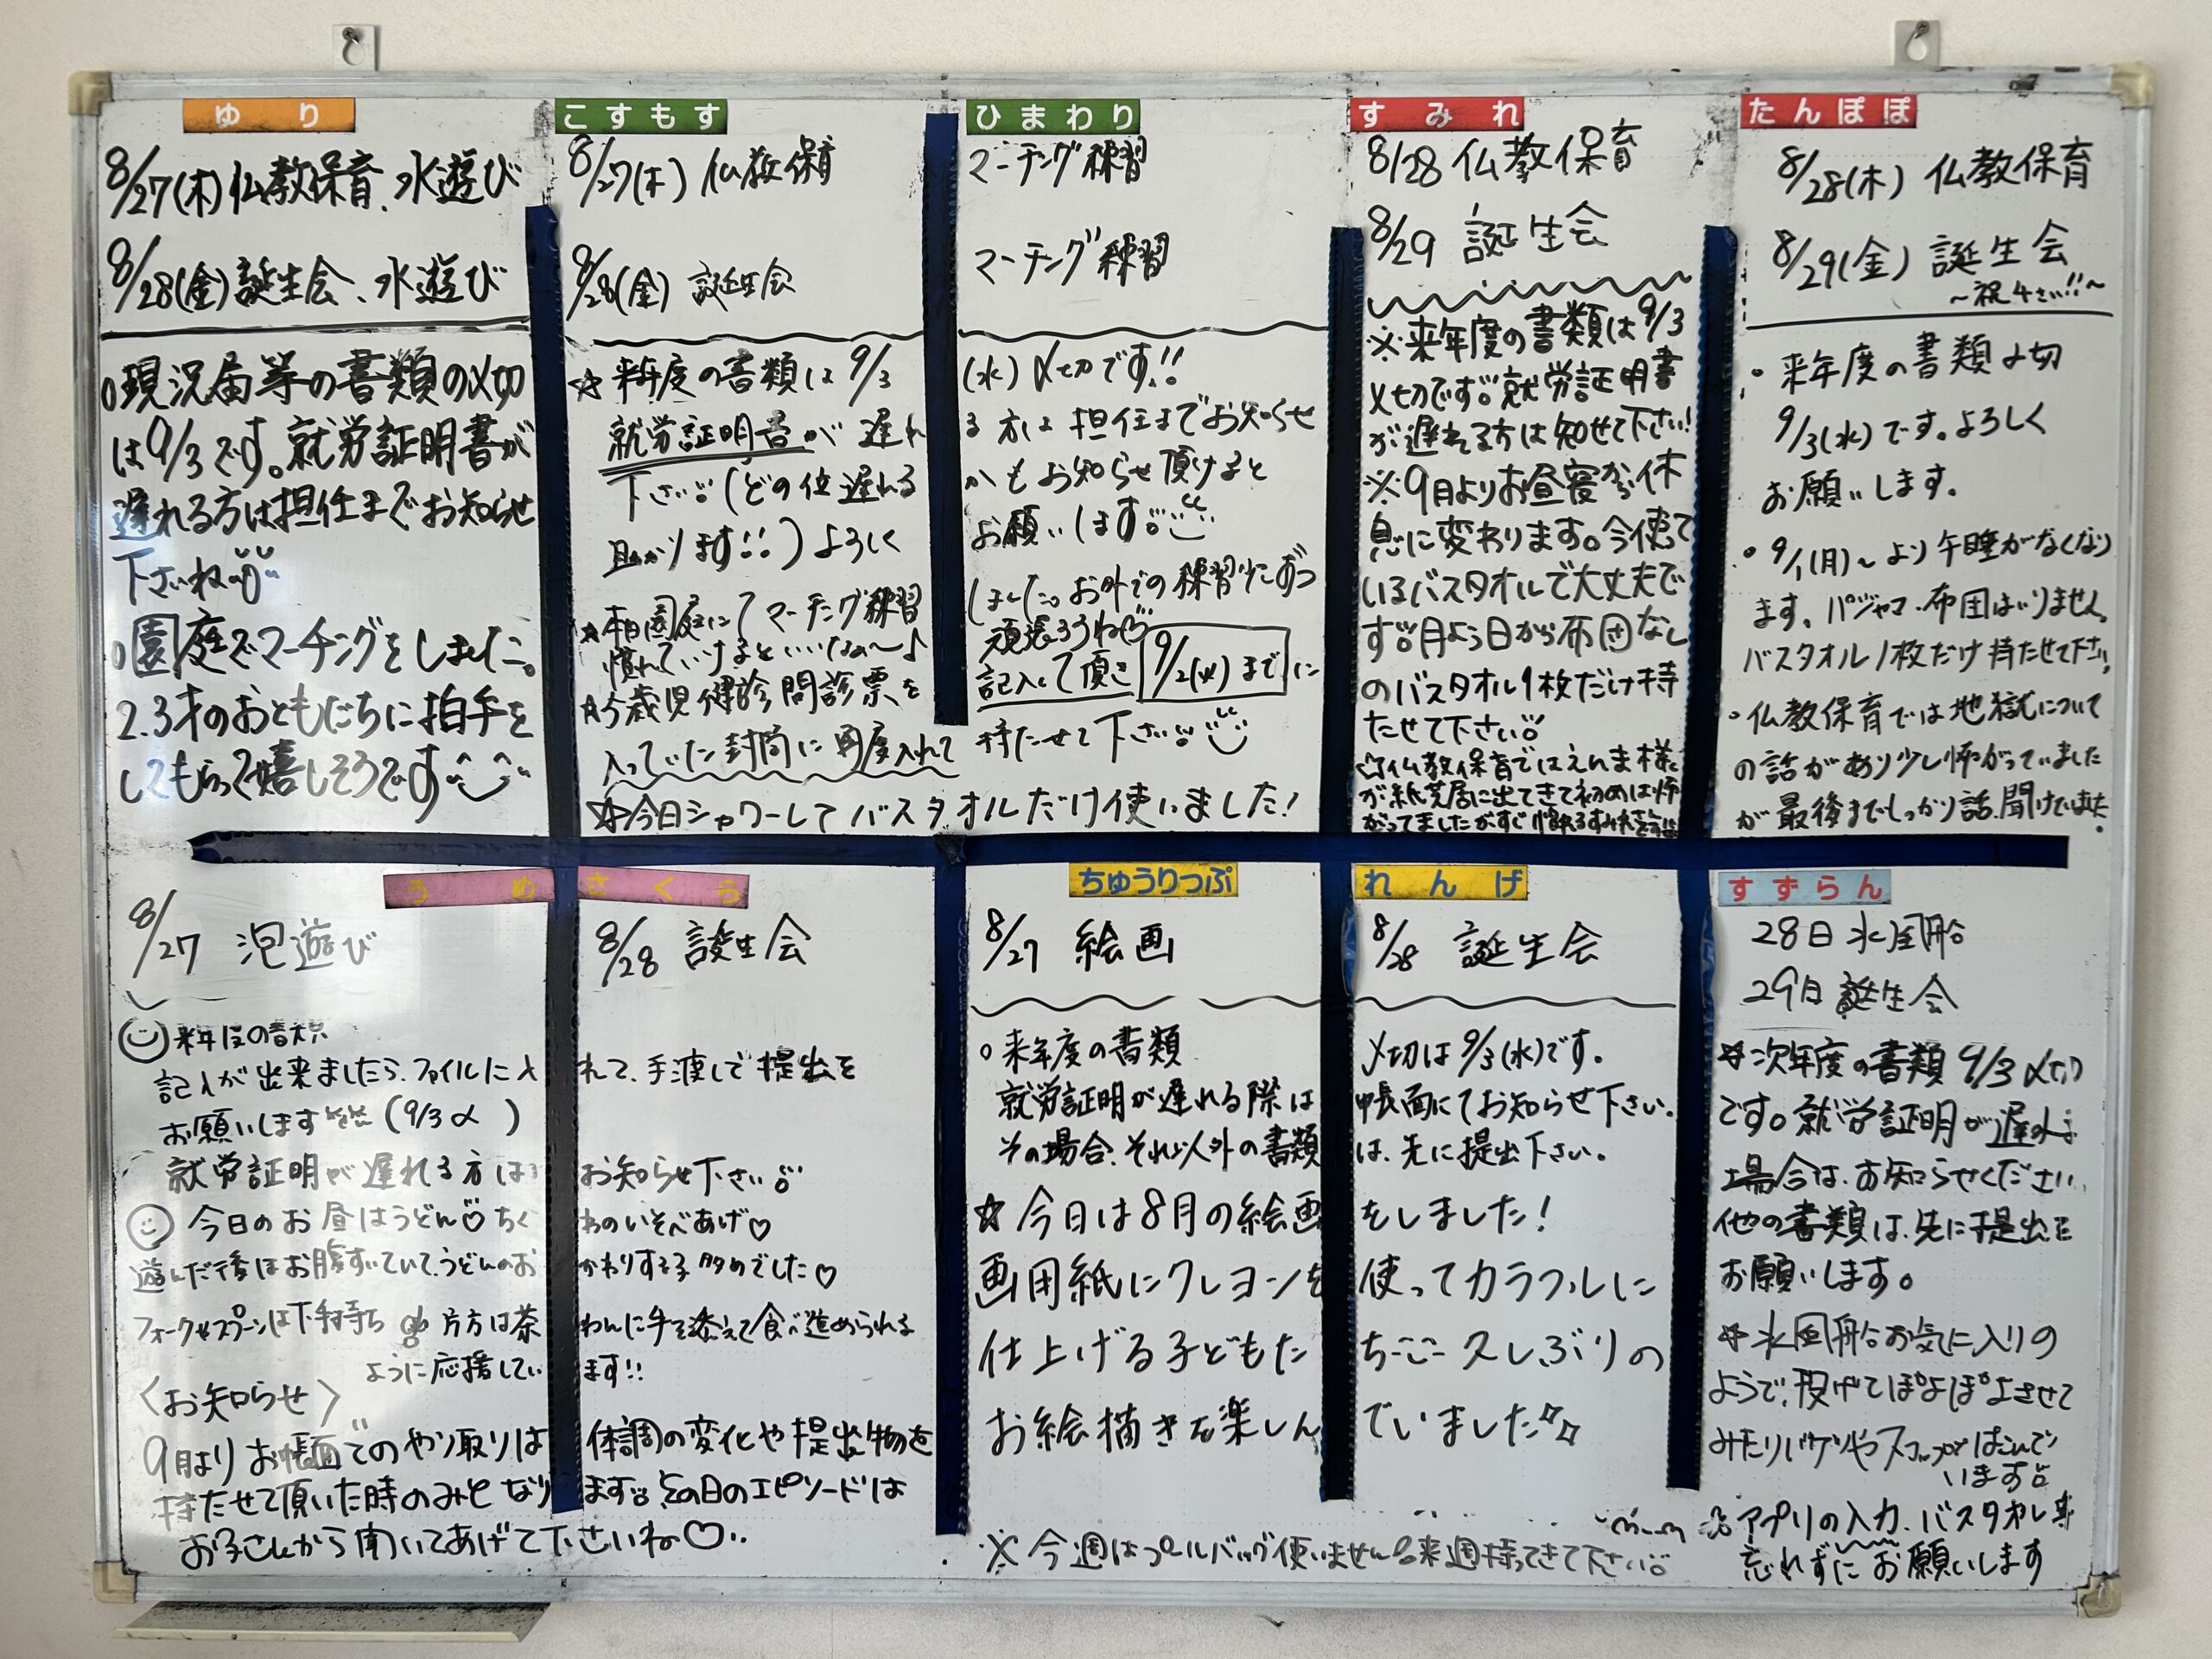 ゆり
8/27(木)仏教保育、水遊び
8/28(金)誕生会、水遊び
○現況届等の書類の〆切
は9/3です。就労証明書が
遅れる方は担任までお知らせ
下さいね
○園庭でマーチングをしました。
2.3才のおともだちに拍手を
してもらって嬉しそうです
こすもす
ひまわり
8/27(木) 仏教保育
マーチング練習
8/28(金) 誕生会
マーチング練習
☆ 来年度の書類は 9/3(水)〆切です!!
就労証明書が 遅れる方は 担任までお知らせ
下さい。(どの位遅れるかもお知らせ頂けると
助かります!!)よろしくお願いします。
☆本日園庭にてマーチング練習しました。お外での練習少しずつ
慣れていけるといいなぁ〜♪頑張ろうね
☆5歳児健診問診票を記入して頂き 9/2(火)まで に
入っていた封筒に再度入れて 持たせて下さい。
☆今日シャワーしてバスタオルだけ使いました!
すみれ
8/28 仏教保育
8/29 誕生会
※来年度の書類は9/3
〆切です。就労証明書
が遅れる方は知せて下さい!
※9月よりお昼寝から休
息に変わります。今使って
いるバスタオルで大丈夫で
す。月よう日から布団なし
のバスタオル1枚だけ持
たせて下さい。
☆仏教保育ではえんま様
が紙芝居に出てきて初めは怖
がってましたがすぐ
たんぽぽ
8/28(木) 仏教保育
8/29(金) 誕生会
〜祝4さい!!〜
・来年度の書類〆切
9/3(水)です。よろしく
お願いします。
・9/1(月)〜より午睡がなくなり
ます。パジャマ・布団はいりません。
バスタオル1枚だけ持たせて下さい。
・仏教保育では地獄について
の話があり少し怖がっていました
が最後までしっかり話聞けていました。
うめ
さくら
8/27 泡遊び
8/28 誕生会
来年度の書類
記入が出来ましたら、ファイルに入れて、手渡しで提出を
お願いします (9/3〆)
就労証明が遅れる方はお知らせ下さい
今日のお昼はうどん♡ちくわのいそべあげ♡
遊んだ後はお腹すいていて、うどんのおかわりする子多めでした♡
フォークやスプーンは下手持ち 片方は茶わんに手を添えて食べ進められる
ように応援しています!!
〈お知らせ〉
9月よりお帳面でのやり取りは体調の変化や提出物を
持たせて頂いた時のみとなります。その日のエピソードは
お子さんから聞いてあげて下さいね♡
ちゅうりっぷ
れんげ
8/27 絵画
8/28 誕生会
○来年度の書類 〆切は9/3(水)です。
就労証明が遅れる際は帳面にてお知らせ下さい。
その場合、それ以外の書類は、先に提出下さい。
☆今日は8月の絵画をしました!
画用紙にクレヨンを使ってカラフルに
仕上げる子どもたち 久しぶりの
お絵描きを楽しんでいました☆
※今週はプールバッグ使いません。来週持ってきて下さい。
すずらん
28日 水風船
29日 誕生会
☆次年度の書類 9/3〆切
です。就労証明が遅れる
場合は、お知らせください。
他の書類は、先に提出を
お願いします。
☆水風船お気に入りの
ようで、投げてぽよぽよさせて
みたりバケツやスコップではこんで
います
☆アプリの入力、バスタオル
忘れずにお願いします